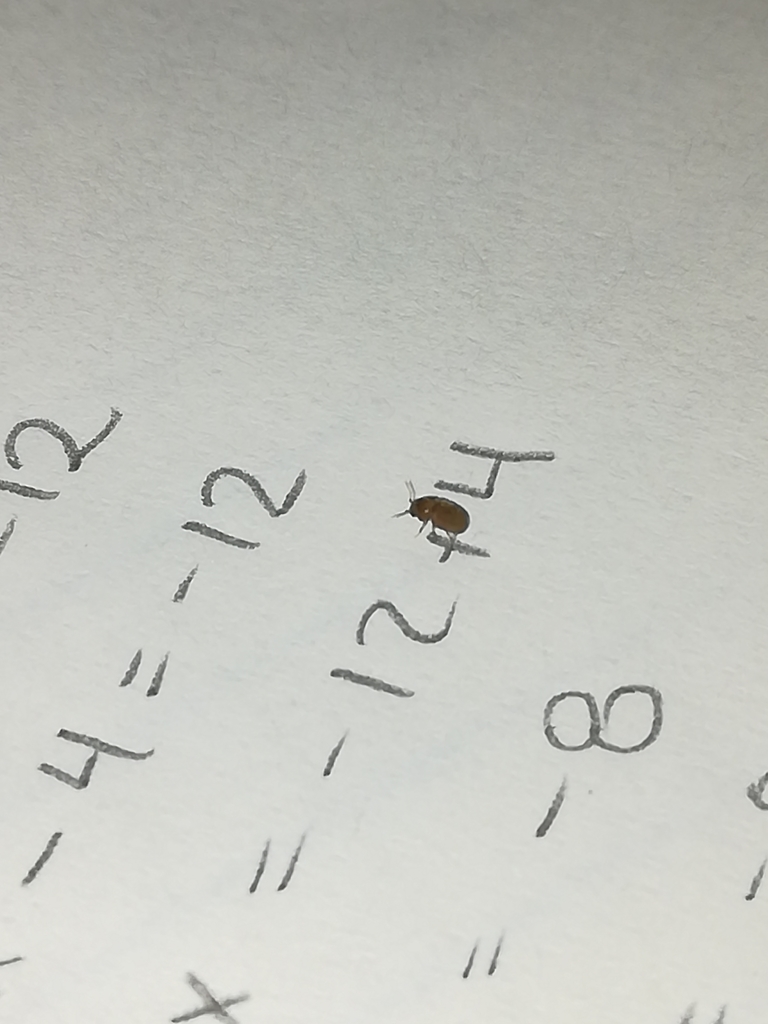 -12
- 4 = -12
x = -12 + 4
= -8